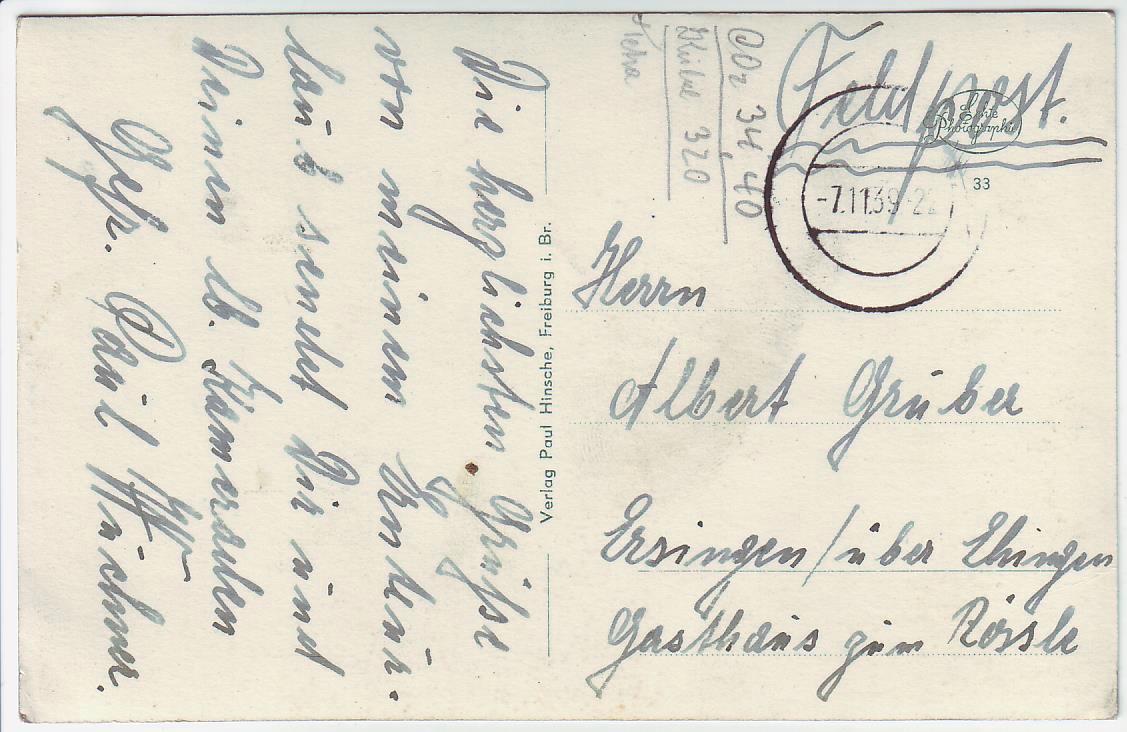 Feldpost.
Echte
Photographie
33
-7.11.39-22
34,40
320
Die herzlichsten Grüsse
von meinem Ernteur-
laub sendet Dir und
Deinen lb. Kameraden
Gefr. Paul
Verlag Paul Hinsche, Freiburg i. Br.
Herrn
Albert Gruber
Ersingen / über Ehingen
Gasthaus zum Rössle